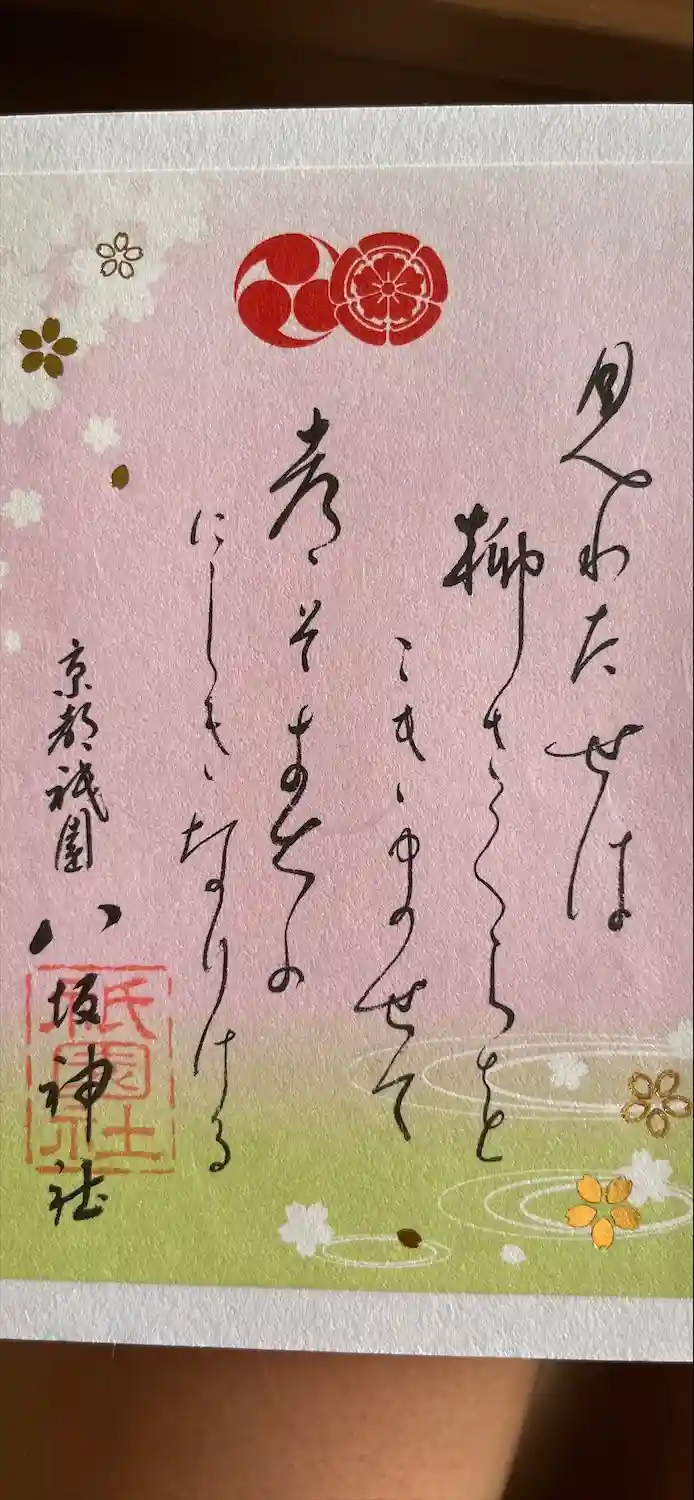 見わたせは
柳さくらを
こきませて
都そ春の
にしきなりける
京都祇園
八坂神社
祇園社